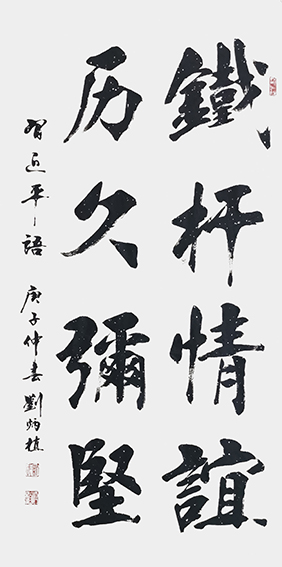 鐵杆情誼
历久彌堅
習近平語 庚子仲春 劉炳